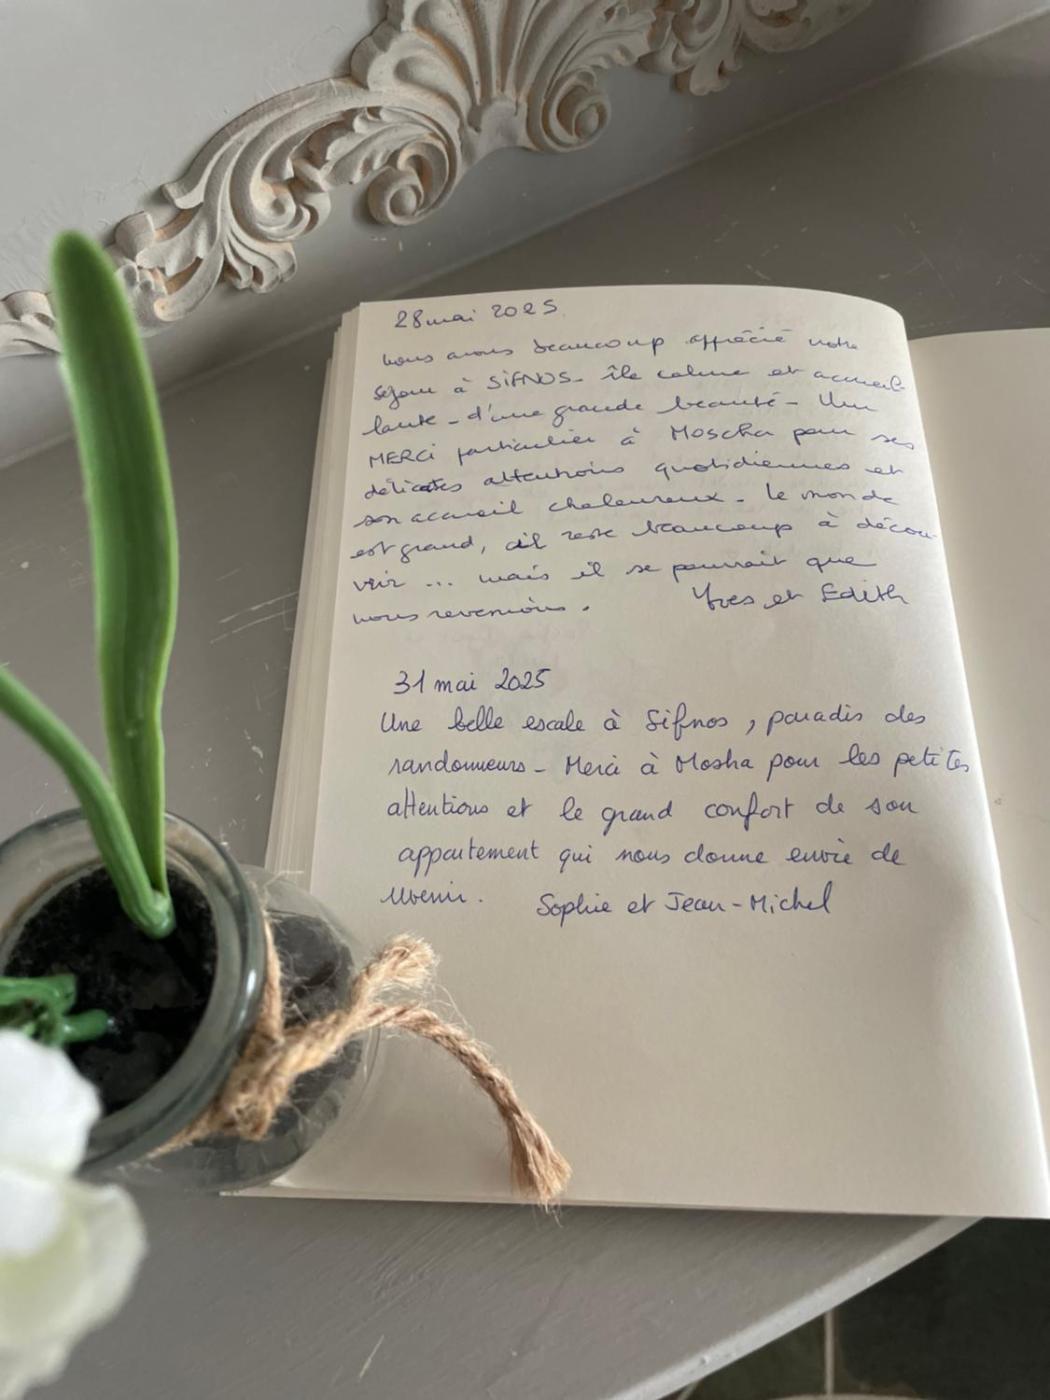 28 mai 2025.
Nous avons beaucoup apprécié notre
séjour à SiFNOS - île calme et accueil-
lante - d'une grande beauté - Un
MERCi particulier à Moscha pour ses
délicates attentions quotidiennes et
son accueil chaleureux - le monde
est grand, il reste beaucoup à décou-
vrir ... mais il se pourrait que
nous revenions. Yves et Edith
31 mai 2025
Une belle escale à Sifnos, paradis des
randonneurs - Merci à Mosha pour les petites
attentions et le grand confort de son
appartement qui nous donne envie de
revenir. Sophie et Jean-Michel